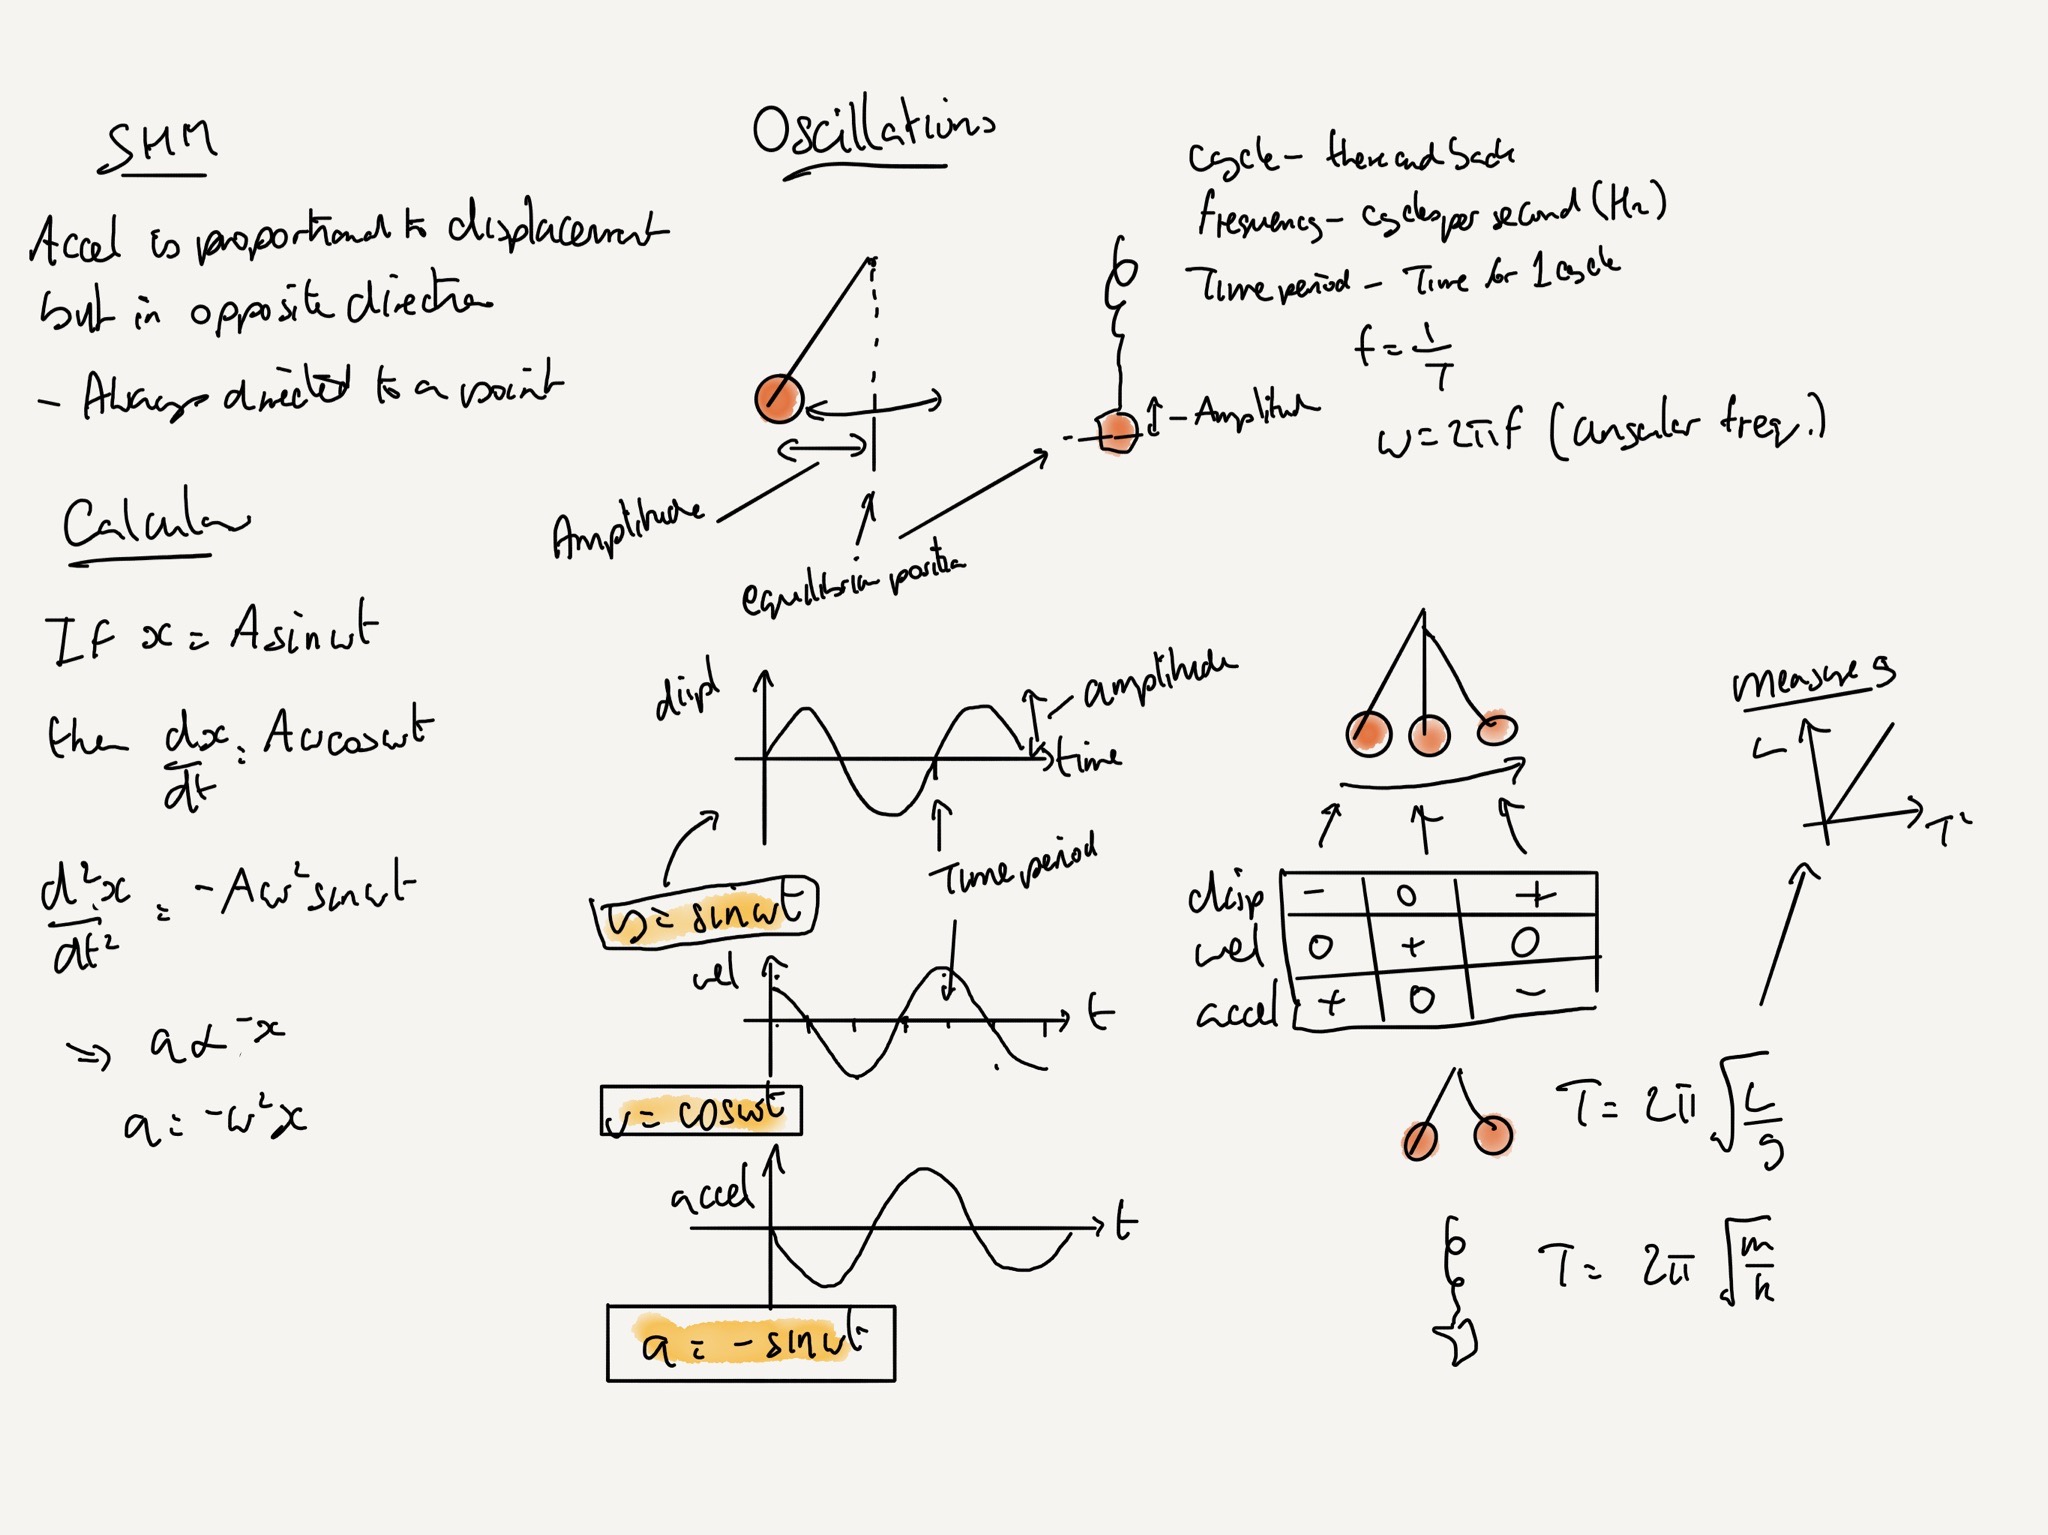 Oscillations
SHM
Accel is proportional to displacement
but in opposite direction
- Always directed to a point
Calculus
If x = A sin ωt
then dx/dt = Aω cos ωt
d²x/dt² = -Aω² sin ωt
⇒ a ∝ -x
a = -ω²x
Amplitude
equilibrium position
- Amplitude
cycle - there and back
frequency - cycles per second (Hz)
Time period - Time for 1 cycle
f = 1/T
ω = 2πf (angular freq.)
displ
amplitude
time
Time period
s = sin ωt
vel
t
v = cos ωt
accel
t
a = - sin ωt
disp - 0 +
vel 0 + 0
accel + 0 -
measure g
L
T²
T = 2π √(L/g)
T = 2π √(m/k)